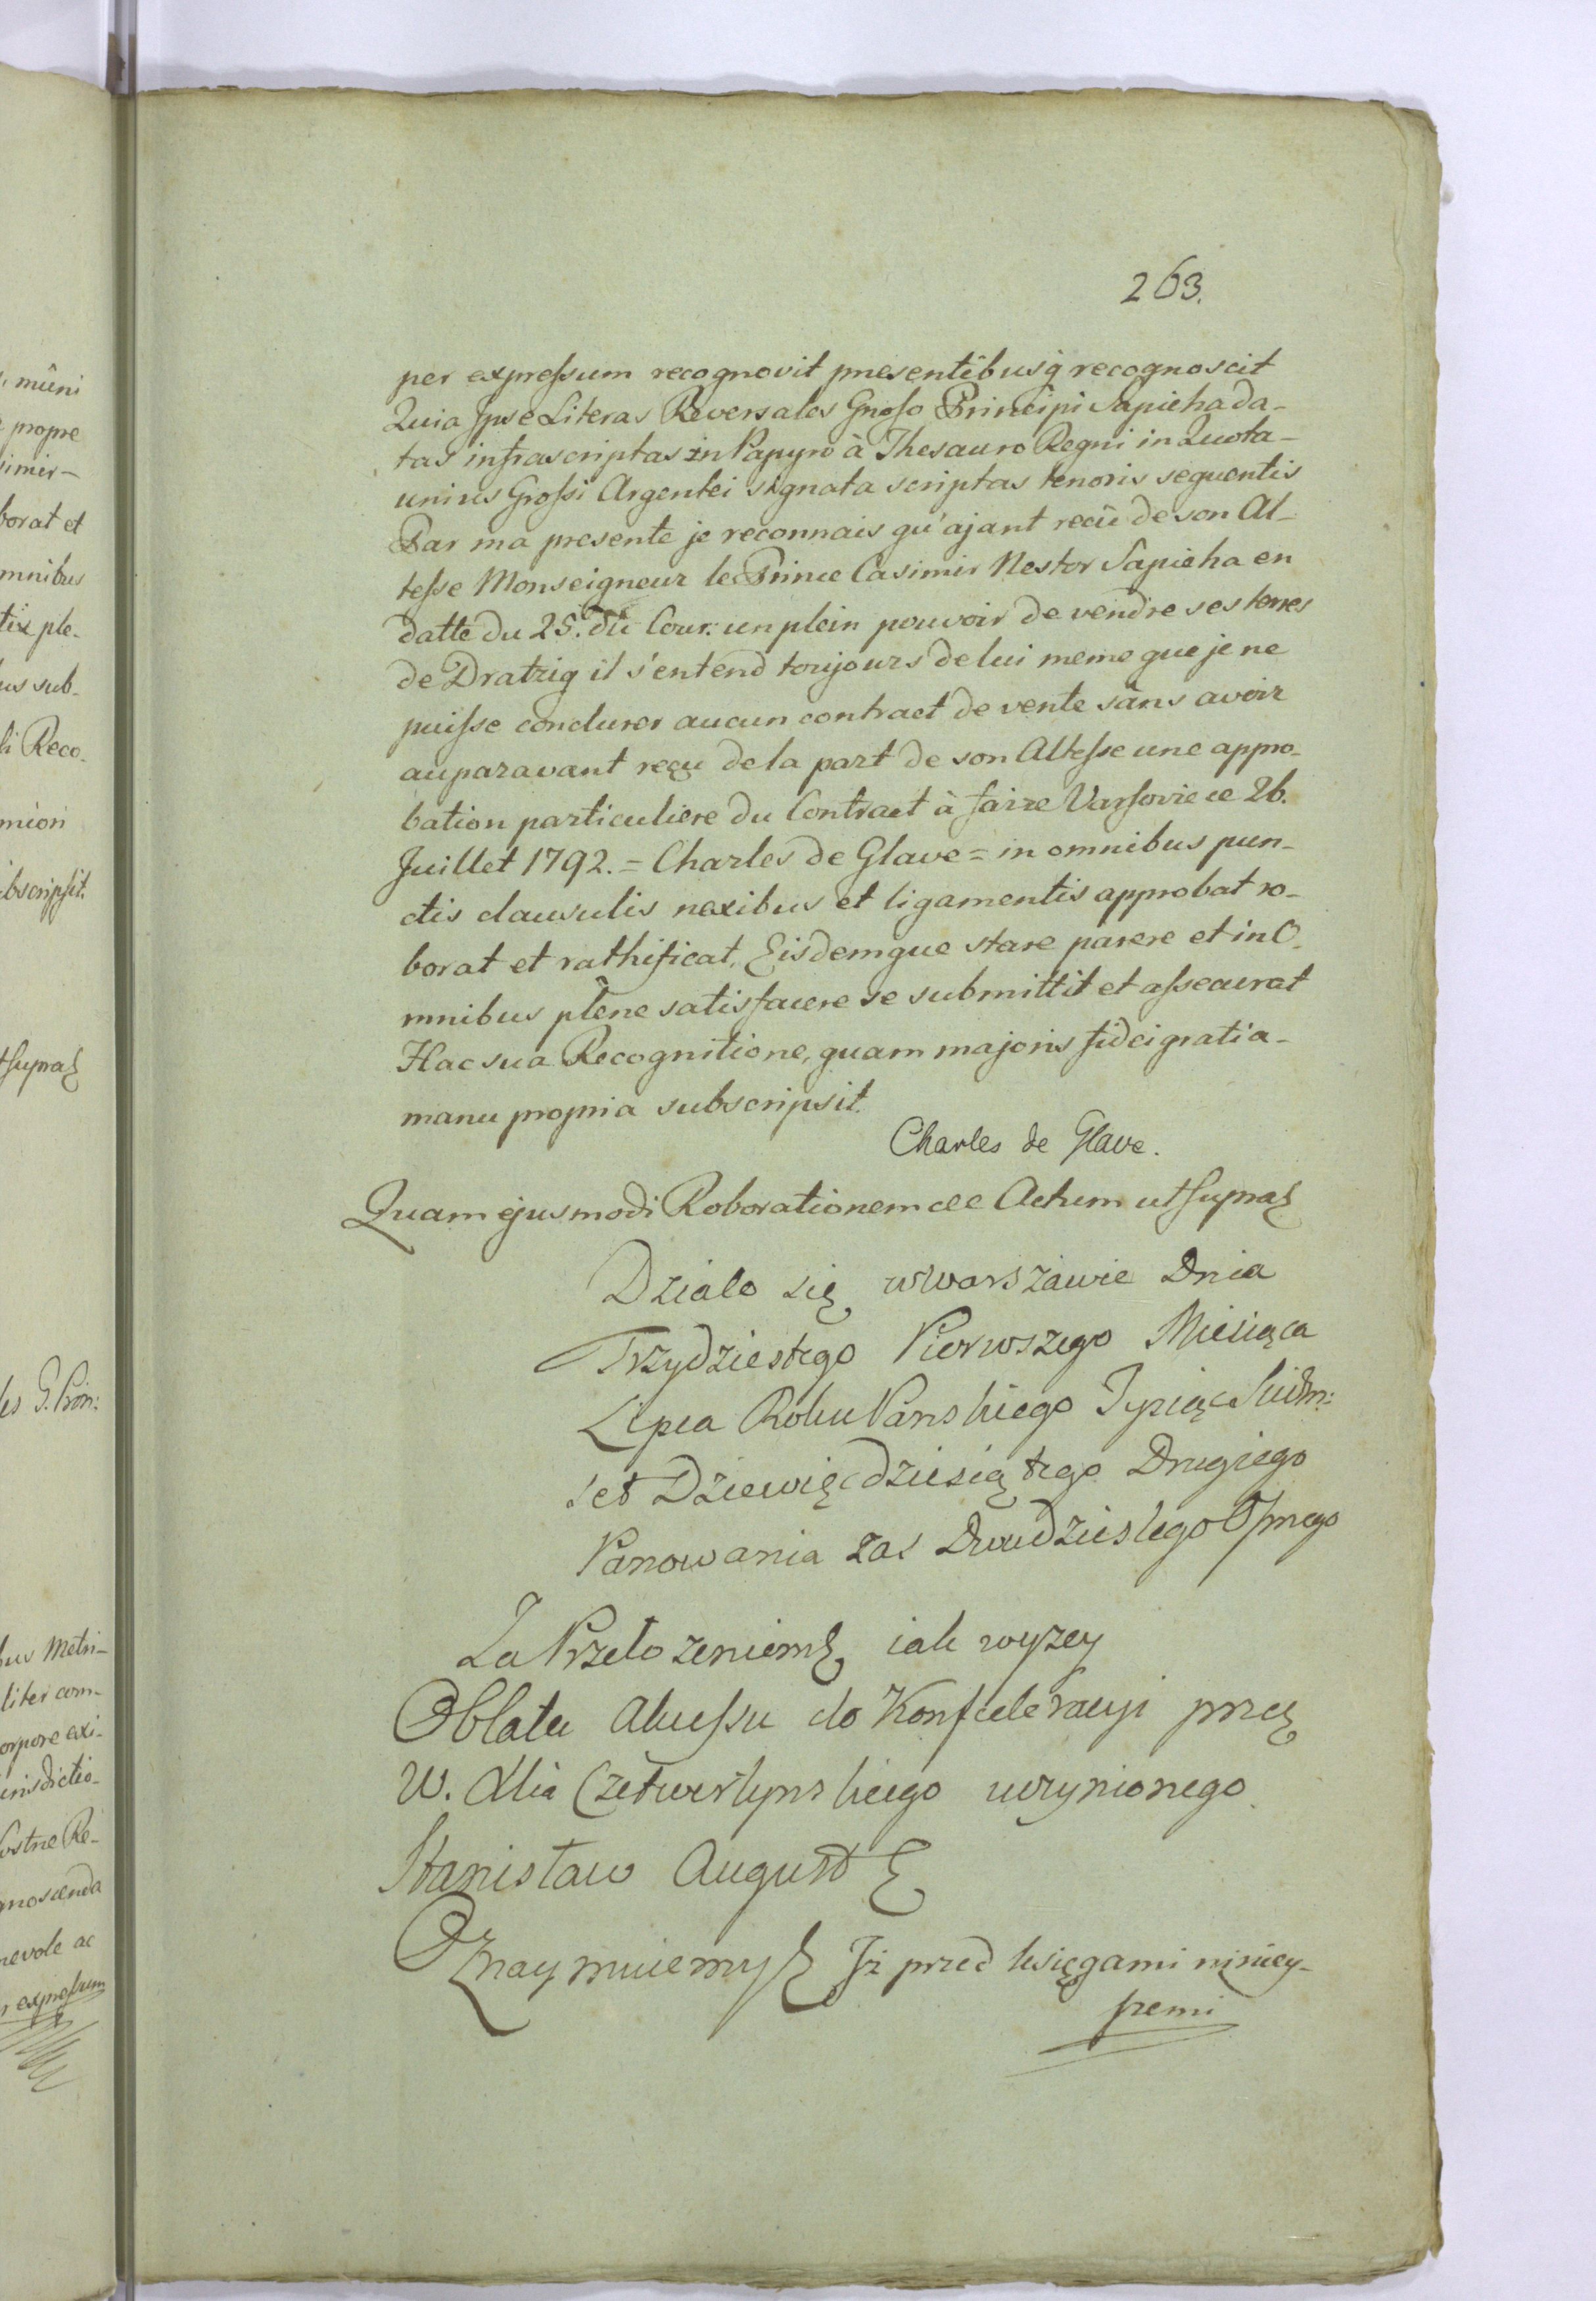 263.
per expreſsum recognovit pnesentibusq̃ recognoscit
Quia Ipse Literas Reversales Gnoſo Principi Sapieha da-
tas infrascriptas in Papyro à Thesauro Regni in Quota-
unius Groſsi Argentei signata scriptas tenoris sequentis
Par ma presente je reconnais qu'ajant recû de son Al-
teſse Monseigneur le Prince Casimir Nestor Sapieha en
datte du 25. du Cour: un plein pouvoir de vendre ses terres
de Dratzig il s'entend toujours de lui meme que je ne
puiſse conclurer aucun contract de vente sans avoir
auparavant reçu de la part de son Alteſse une appro-
bation particuliere du Contract à faire Varſovie ce 26.
Juillet 1792. = Charles de Glave = in omnibus pun-
ctis clausulis nexibus et ligamentis approbat ro-
borat et rathificat, Eisdemque stare parere et in O-
mnibus plene satisfacere se submittit et aſsecurat
Hac sua Recognitione, quam majoris fidei gratia-
manu propria subscripsit.
Charles de Glave.
Quam ejusmodi Roborationem etc Actum ut Supra
Działo się w Warszawie Dnia
Trzydziestego Pierwszego Miesiąca
Lipca Roku Panskiego Tysiąc Siedm:
set Dziewięcdziesiątego Drugiego
Panowania zas Dwudziestego Oſmego
Za Przełozeniem iak wyzey
Oblata Akceſsu do Konfederacyi przez
W. Xcia Czetwertynskiego uczynionego.
Stanisław August
Oznaymuiemy Iż przed księgami ninieỳ-
szemi
muni
propre
imir-
borat et
mnibus
tix ple-
us sub-
li Reco-
ubscripſit.
t Supra
les G. Prin:
bus Metri-
liter com-
orpore exi-
urisdictio-
ostne Re-
gnoscenda
nevole ac
r expreſsum